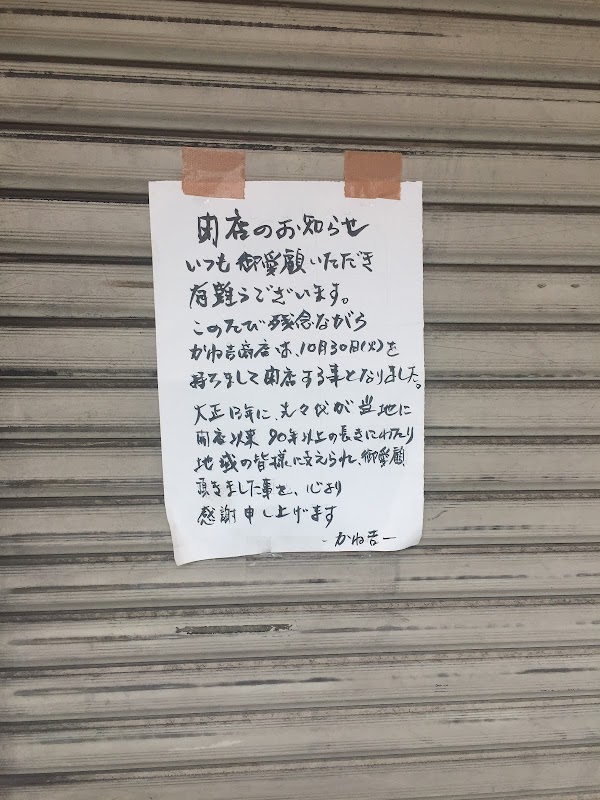 閉店のお知らせ
いつも御愛顧いただき
有難うございます。
このたび残念ながら
かね吉商店は、10月30日(火)を
持ちまして閉店する事となりました。
大正13年に、先々代が当地に
開店以来90年以上の長きにわたり
地域の皆様に支えられ、御愛顧
頂きました事を、心より
感謝申し上げます
-かね吉-